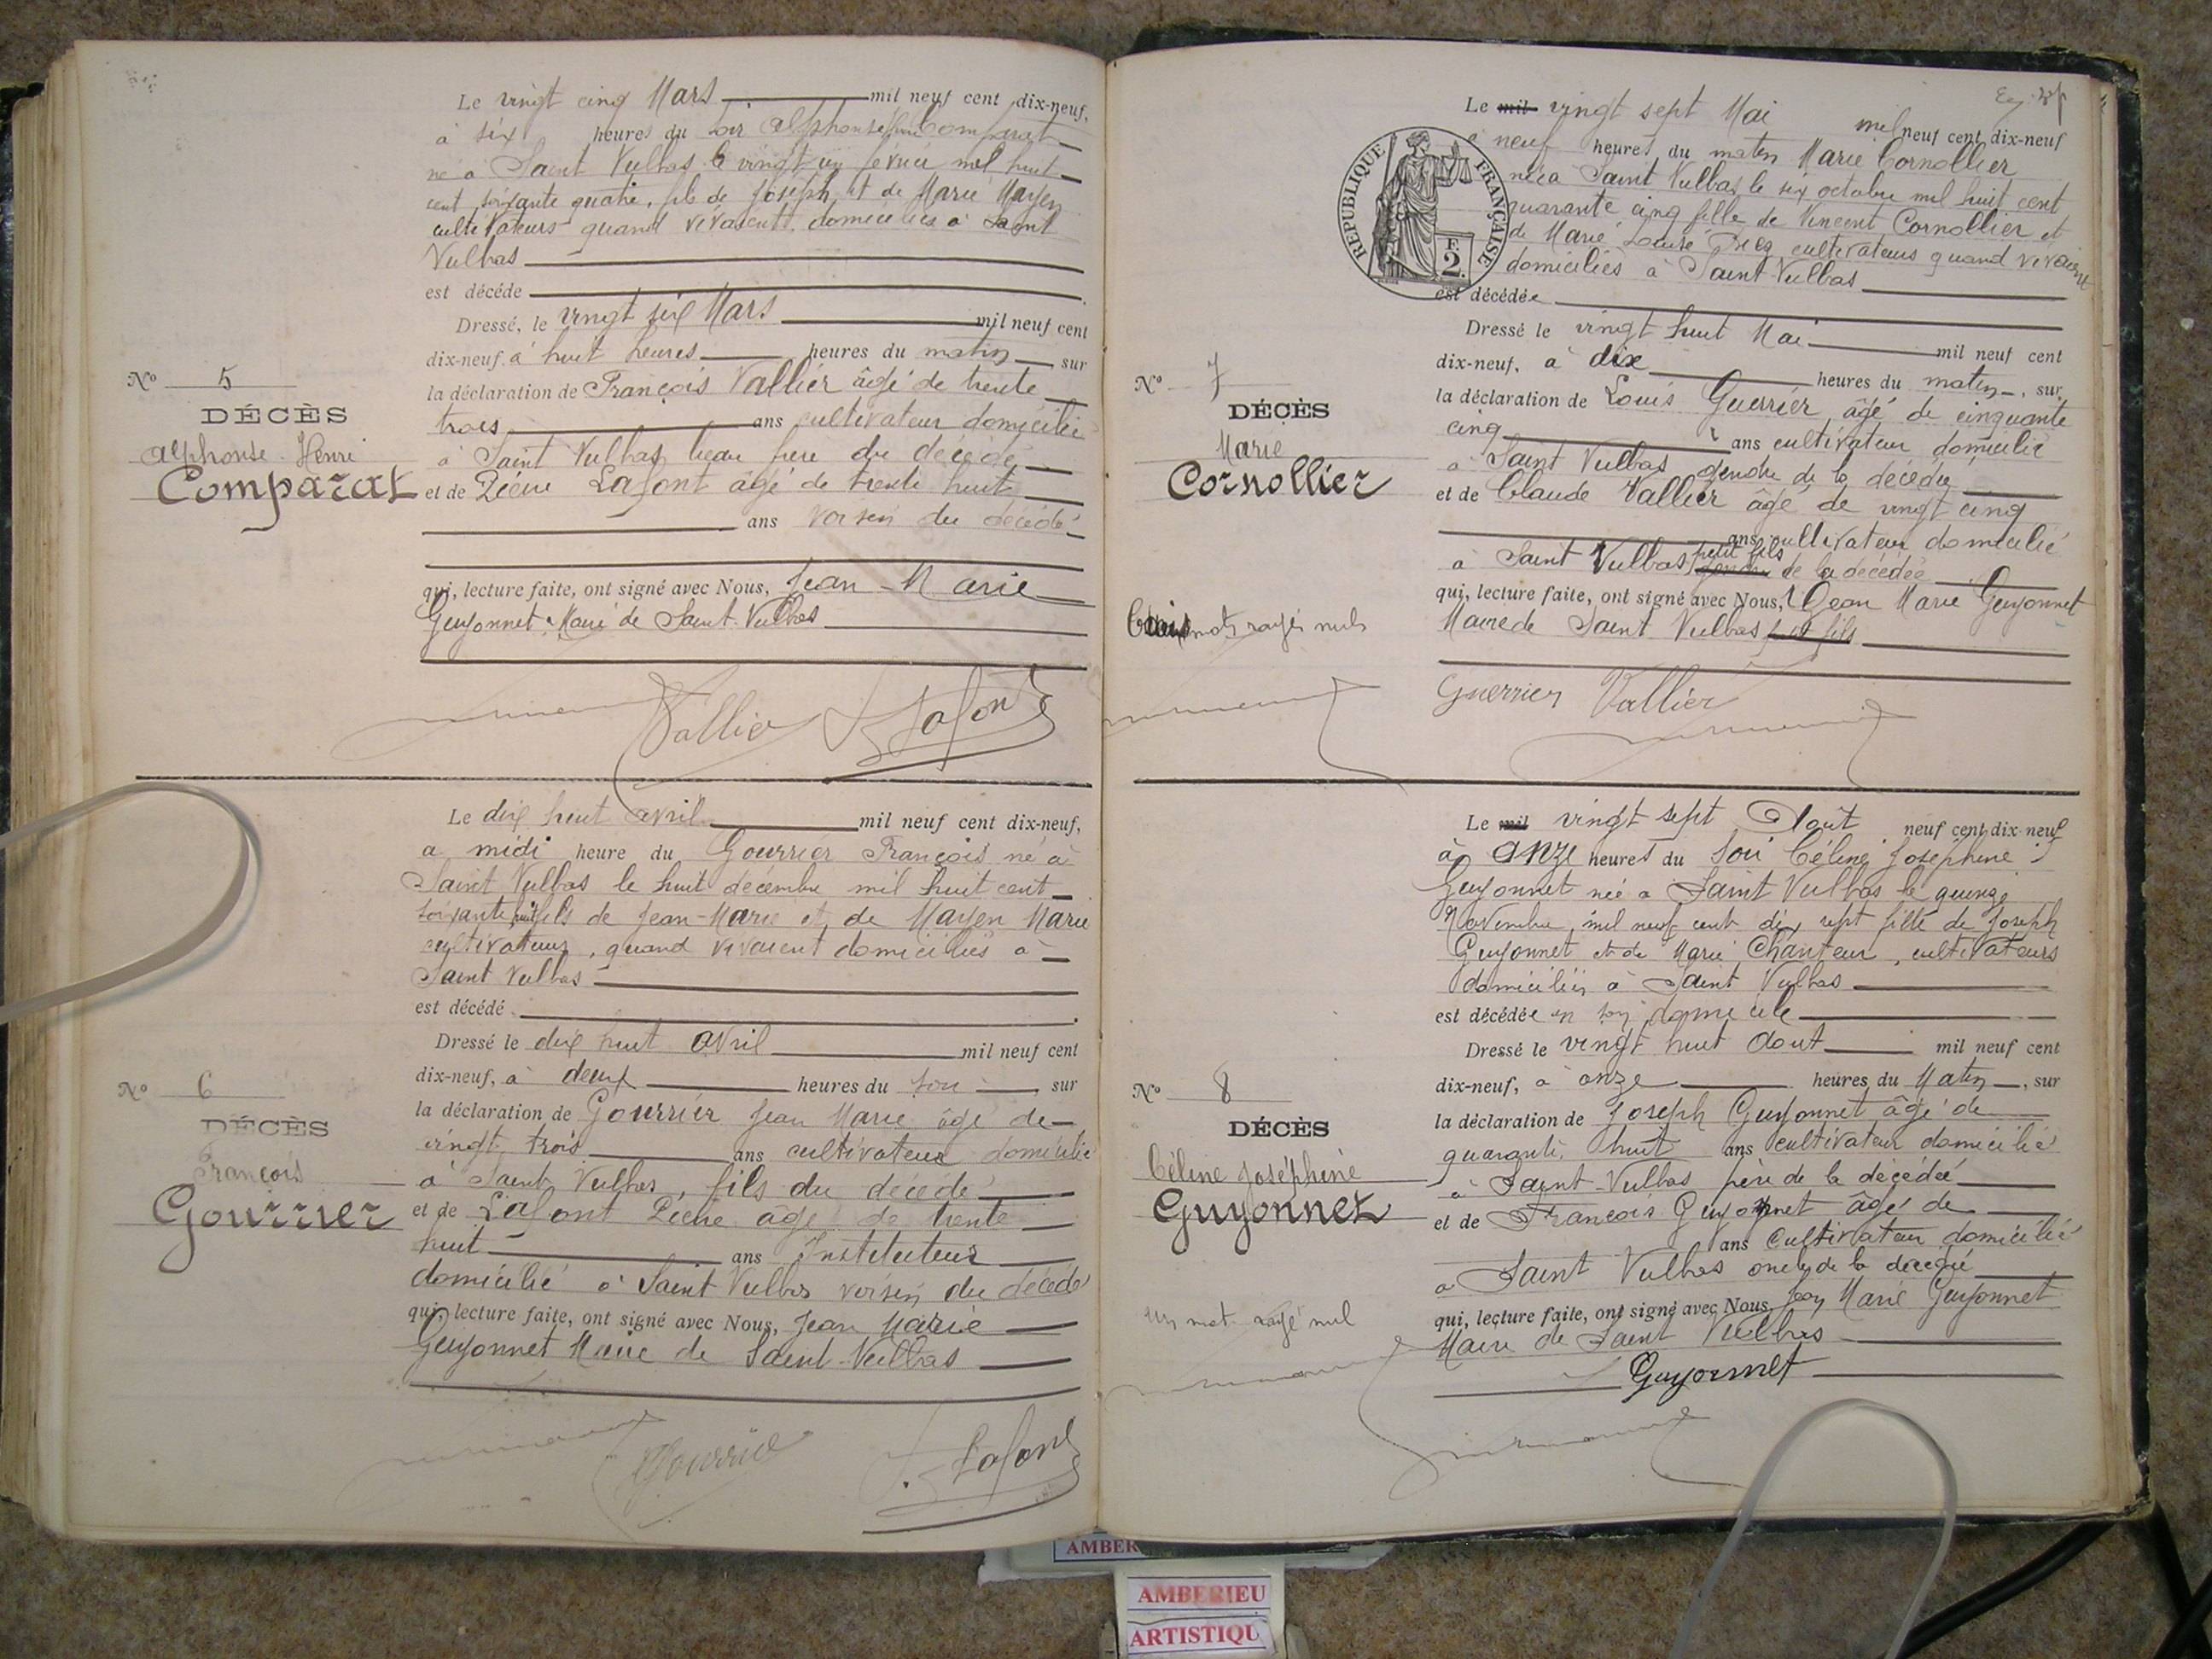 Le vingt cinq Mars mil neuf cent dix-neuf,
à six heures du soir Alphonse Henri Comparat
né à Saint Vulbas le vingt un février mil huit
cent soixante quatre, fils de Joseph et de Marie Mayen
cultivateurs quand vivaient domiciliés à Saint
Vulbas
est décédé
Dressé, le vingt six Mars mil neuf cent
dix-neuf, à huit heures heures du matin sur
la déclaration de François Vallier âgé de trente
trois ans cultivateur domicilié
à Saint Vulbas beau frère du décédé
et de Pierre Lafont âgé de trente huit
ans voisin du décédé
qui, lecture faite, ont signé avec Nous, Jean-Marie
Guyonnet Maire de Saint-Vulbas
Vallier Lafont
N° 5
DÉCÈS
Alphonse Henri
Comparat
Le dix huit avril mil neuf cent dix-neuf,
a midi heure du Gourrier François né à
Saint Vulbas le huit décembre mil huit cent
soixante huit fils de Jean-Marie et de Mayen Marie
cultivateurs, quand vivaient domiciliés à
Saint Vulbas
est décédé
Dressé le dix huit avril mil neuf cent
dix-neuf, à deux heures du soir sur
la déclaration de Gourrier Jean Marie âgé de
vingt trois ans cultivateur domicilié
à Saint-Vulbas, fils du décédé
et de Lafont Pierre âgé de trente
huit ans Instituteur
domicilié à Saint Vulbas voisin du décédé
qui, lecture faite, ont signé avec Nous, Jean Marie
Guyonnet Maire de Saint-Vulbas
Gourrier Lafont
N° 6
DÉCÈS
François
Gourrier
Le mil vingt sept Mai mil neuf cent dix-neuf
à neuf heures du matin Marie Cornollier
née à Saint Vulbas le six octobre mil huit cent
quarante cinq fille de Vincent Cornollier et
de Marie Louise cultivateurs quand vivaient
domiciliés à Saint-Vulbas
est décédée
RÉPUBLIQUE FRANÇAISE
F.
2.
Dressé le vingt huit Mai mil neuf cent
dix-neuf, à dix heures du matin, sur
la déclaration de Louis Guerrier âgé de cinquante
cinq ans cultivateur domicilié
à Saint Vulbas gendre de la décédée
et de Claude Vallier âgé de vingt cinq
ans cultivateur domicilié
à Saint Vulbas petit fils gendre de la décédée
qui, lecture faite, ont signé avec Nous, Jean Marie Guyonnet
Maire de Saint Vulbas petit fils
Guerrier Vallier
N° 7
DÉCÈS
Marie
Cornollier
mots rayés nuls
Le mil vingt sept Août neuf cent dix-neuf
à onze heures du soir Céline Joséphine
Guyonnet née à Saint Vulbas le quinze
Novembre mil neuf cent dix sept fille de Joseph
Guyonnet et de Marie Chanteur, cultivateurs
domiciliés à Saint Vulbas
est décédée en son domicile
Dressé le vingt huit Aout mil neuf cent
dix-neuf, à onze heures du Matin, sur
la déclaration de Joseph Guyonnet âgé de
quarante huit ans cultivateur domicilié
à Saint-Vulbas père de la décédée
et de François Guyonnet âgé de
ans cultivateur domicilié
à Saint Vulbas oncle de la décédée
qui, lecture faite, ont signé avec Nous, Jean Marie Guyonnet
Maire de Saint Vulbas
Guyonnet
N° 8
DÉCÈS
Céline Joséphine
Guyonnet
un mot rayé nul
AMBER
AMBERIEU
ARTISTIQU